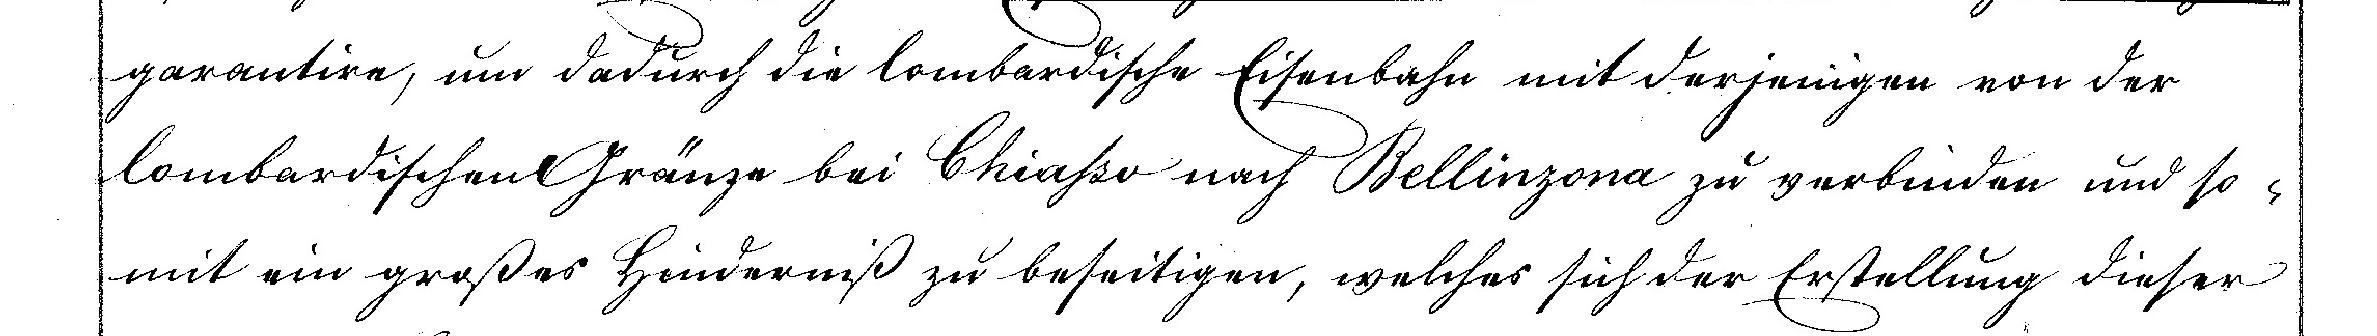 garantire, um dadurch die lombardische Eisenbahn mit derjenigen von der
lombardischen Gränze bei Chiasso nach Bellinzona zu verbinden und so-
mit ein großes Hinderniß zu beseitigen, welches sich der Erstellung dieser